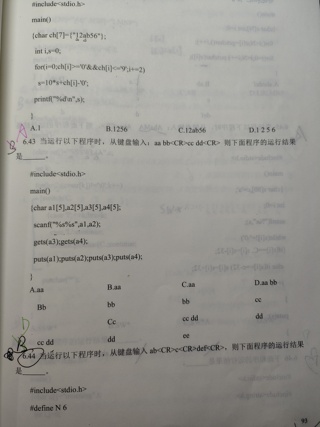 #include<stdio.h>
main()
{char ch[7]={"12ab56"};
int i,s=0;
for(i=0;ch[i]>='0'&&ch[i]<='9';i+=2)
s=10*s+ch[i]-'0';
printf("%d\n",s);
}
A.1 B.1256 C.12ab56 D.1 2 5 6
6.43 当运行以下程序时，从键盘输入：aa bb<CR>cc dd<CR> 则下面程序的运行结果
是____。
#include<stdio.h>
main()
{char a1[5],a2[5],a3[5],a4[5];
scanf("%s%s",a1,a2);
gets(a3);gets(a4);
puts(a1);puts(a2);puts(a3);puts(a4);
}
A.aa B.aa C.aa D.aa bb
Bb bb bb cc
Cc cc dd dd
cc dd dd ee
D
B
6.44 当运行以下程序时，从键盘输入 ab<CR>c<CR>def<CR>，则下面程序的运行结果
是____。
#include<stdio.h>
#define N 6
93